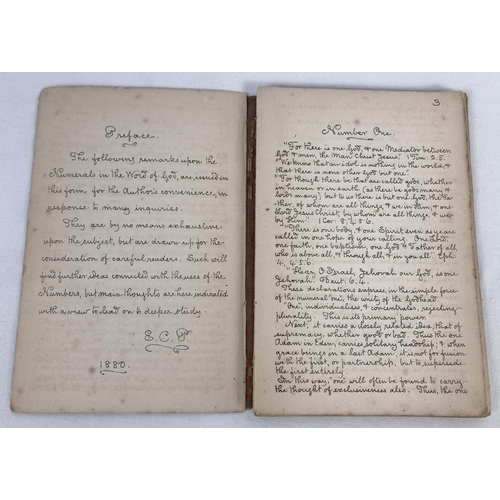 Preface.
The following remarks upon the
Numerals in the Word of God, are issued in
this form, for the Author's convenience, in
response to many inquiries.
They are by no means exhaustive
upon the subject, but are drawn up for the
consideration of careful readers. Such will
find further ideas connected with the uses of the
Numbers, but main thoughts are here indicated
with a view to lead on to deeper study.
1880.
3
Number One
"For there is one God, & one Mediator between
God & men, the Man Christ Jesus." 1 Tim. 2.5.
"We know that an idol is nothing in the world, &
that there is none other God but one."
"For though there be that are called gods, whether
in heaven or in earth (as there be gods many &
lords many) but to us there is but one God, the Fa-
ther, of whom are all things, & we in Him, & one
Lord Jesus Christ, by whom are all things, & we
by Him." 1 Cor. 8.4.5.6.
"There is one body, & one Spirit even as ye are
called in one hope of your calling. One Lord,
one faith, one baptism, one God & Father of all
who is above all, & through all, & in you all." Eph.
4.4.5.6.
"Hear, O Israel, Jehovah our God, is one
Jehovah." Deut. 6.4.
These declarations express, in the simple force
of the numeral "one", the unity of the Godhead.
"One", individualises, & concentrates, rejecting
plurality. This is its primary power.
Next, it carries a closely related idea, that of
supremacy, whether good or bad. Thus the one
Adam in Eden, carries solitary headship; & when
grace brings in a last Adam, it is not for fusion
with the first, or partnership, but to supersede
the first entirely.
In this way, "one" will often be found to carry
the thought of exclusiveness also. Thus, the one